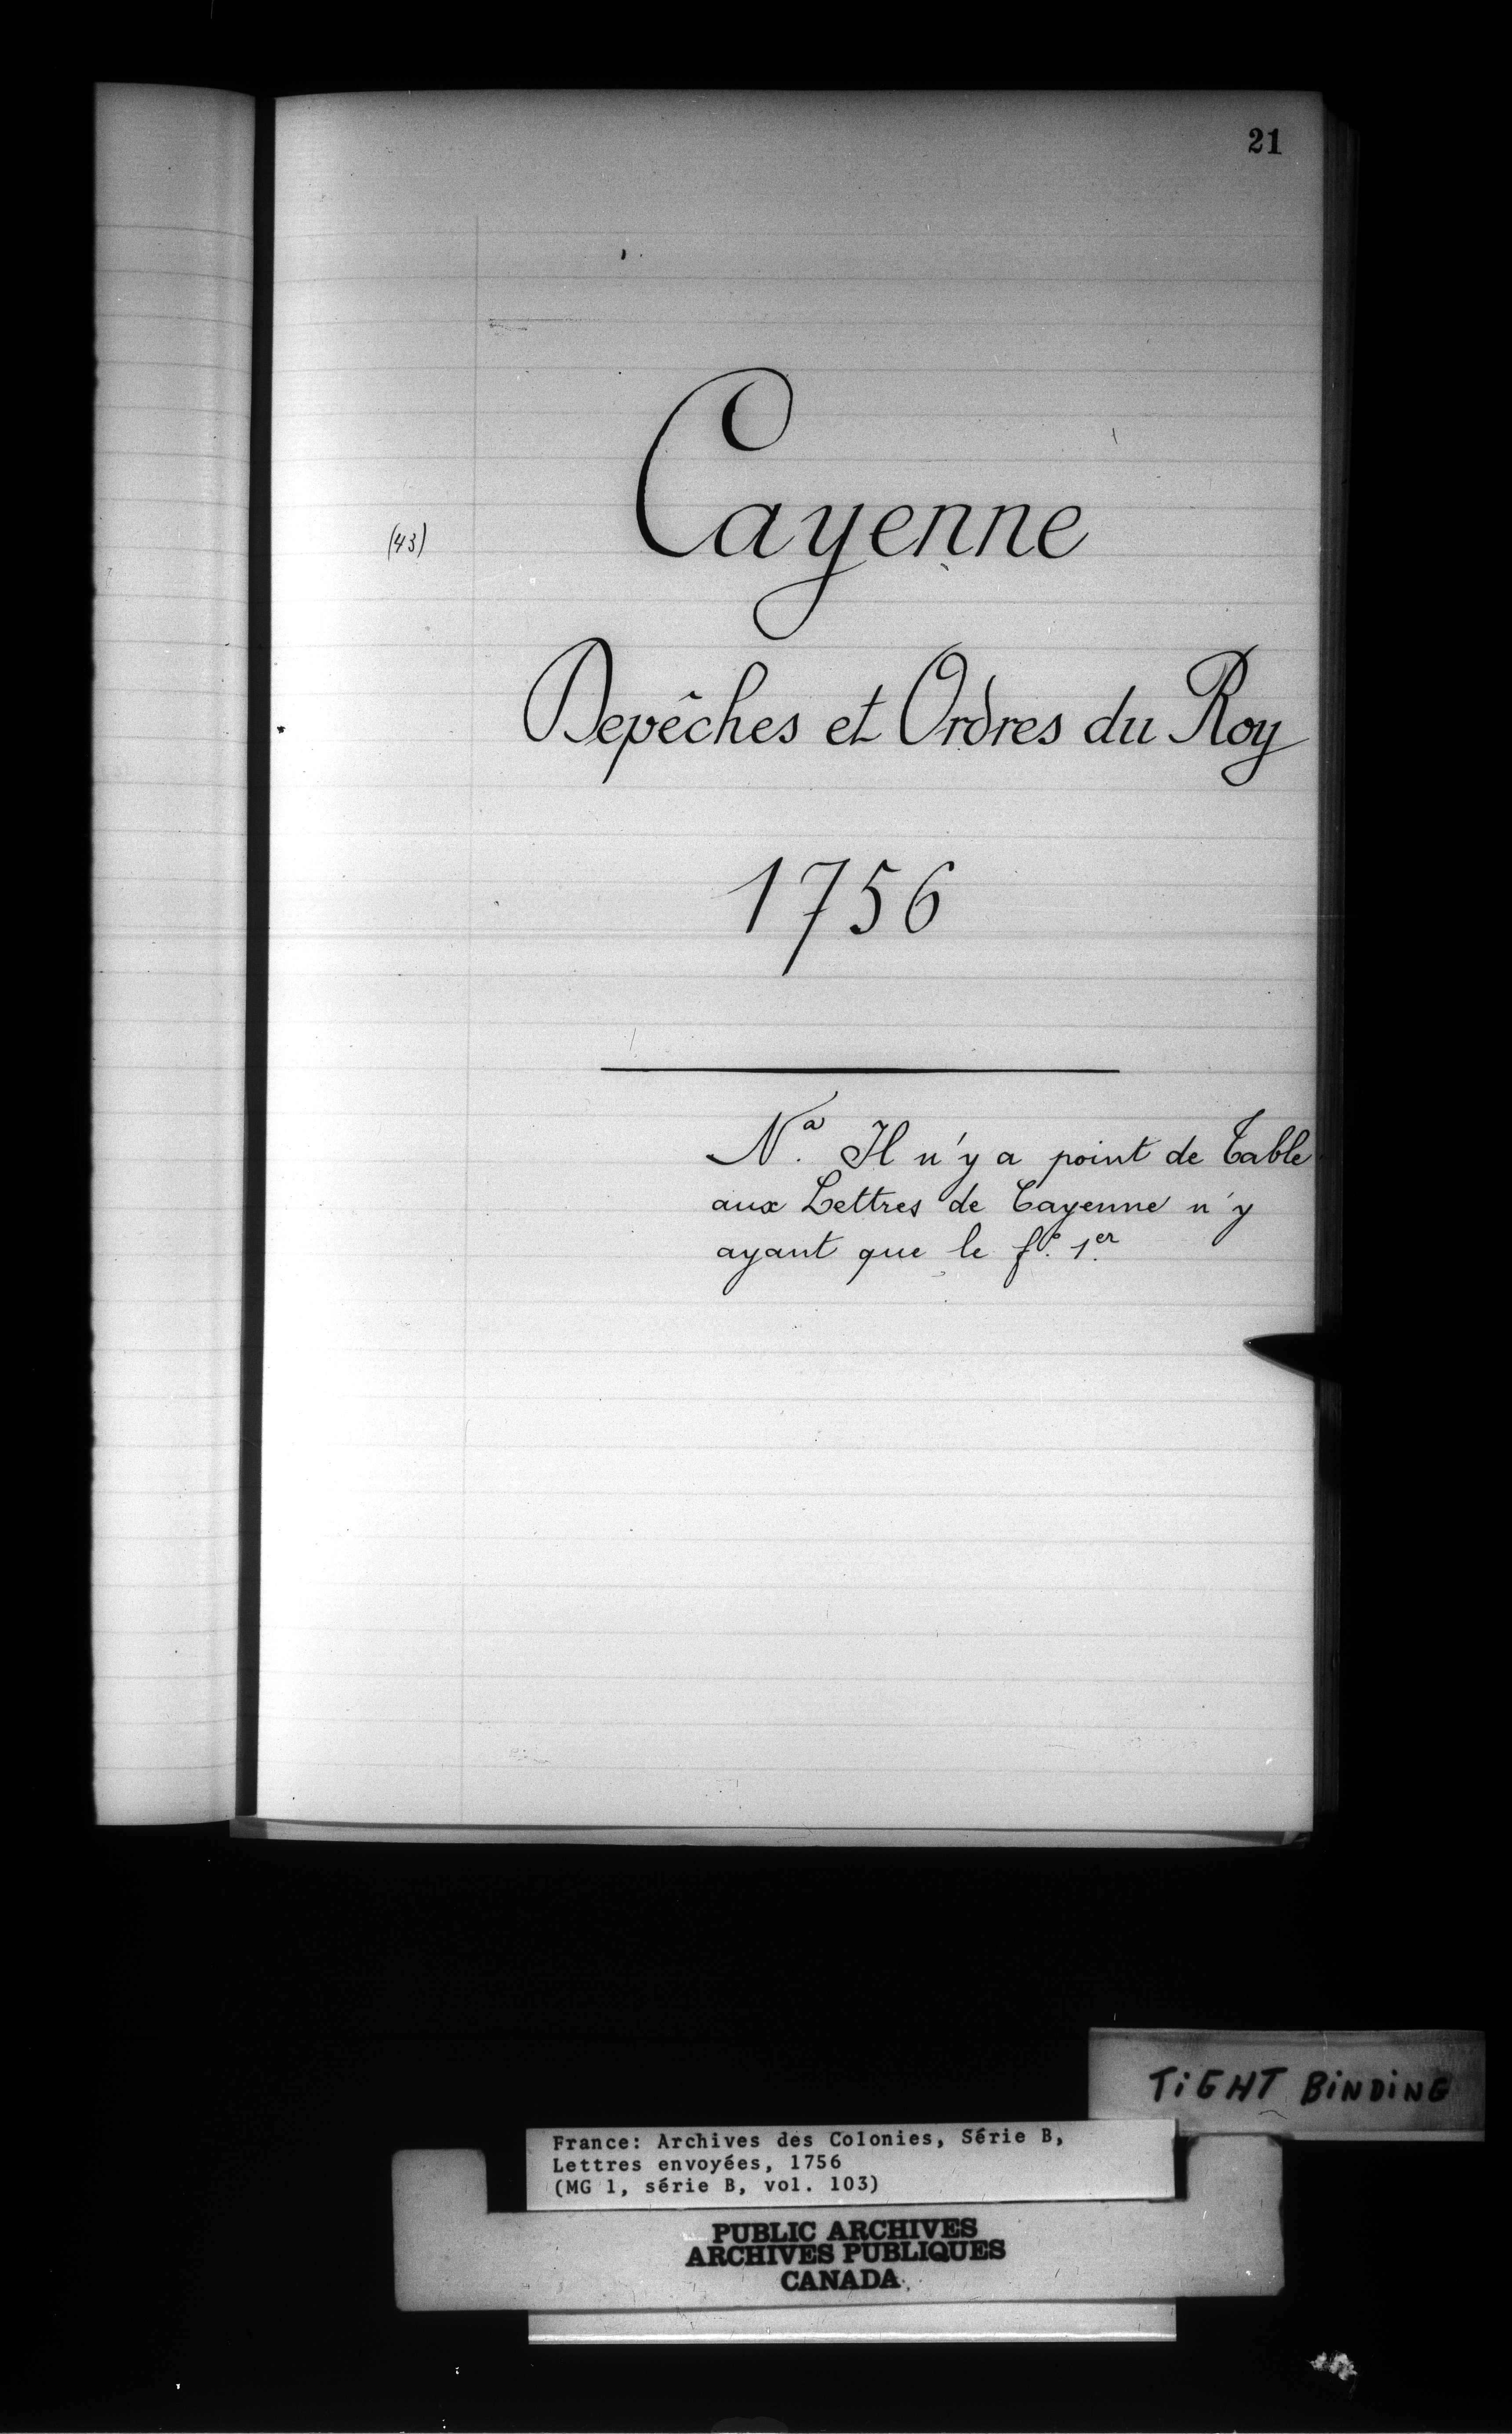 21
(43)
Cayenne
Depêches et Ordres du Roy
1756
Nª. Il n'y a point de Table
aux Lettres de Cayenne n'y
ayant que le fº. 1er.
TiGHT BiNDiNG
France: Archives des Colonies, Série B,
Lettres envoyées, 1756
(MG 1, série B, vol. 103)
PUBLIC ARCHIVES
ARCHIVES PUBLIQUES
CANADA